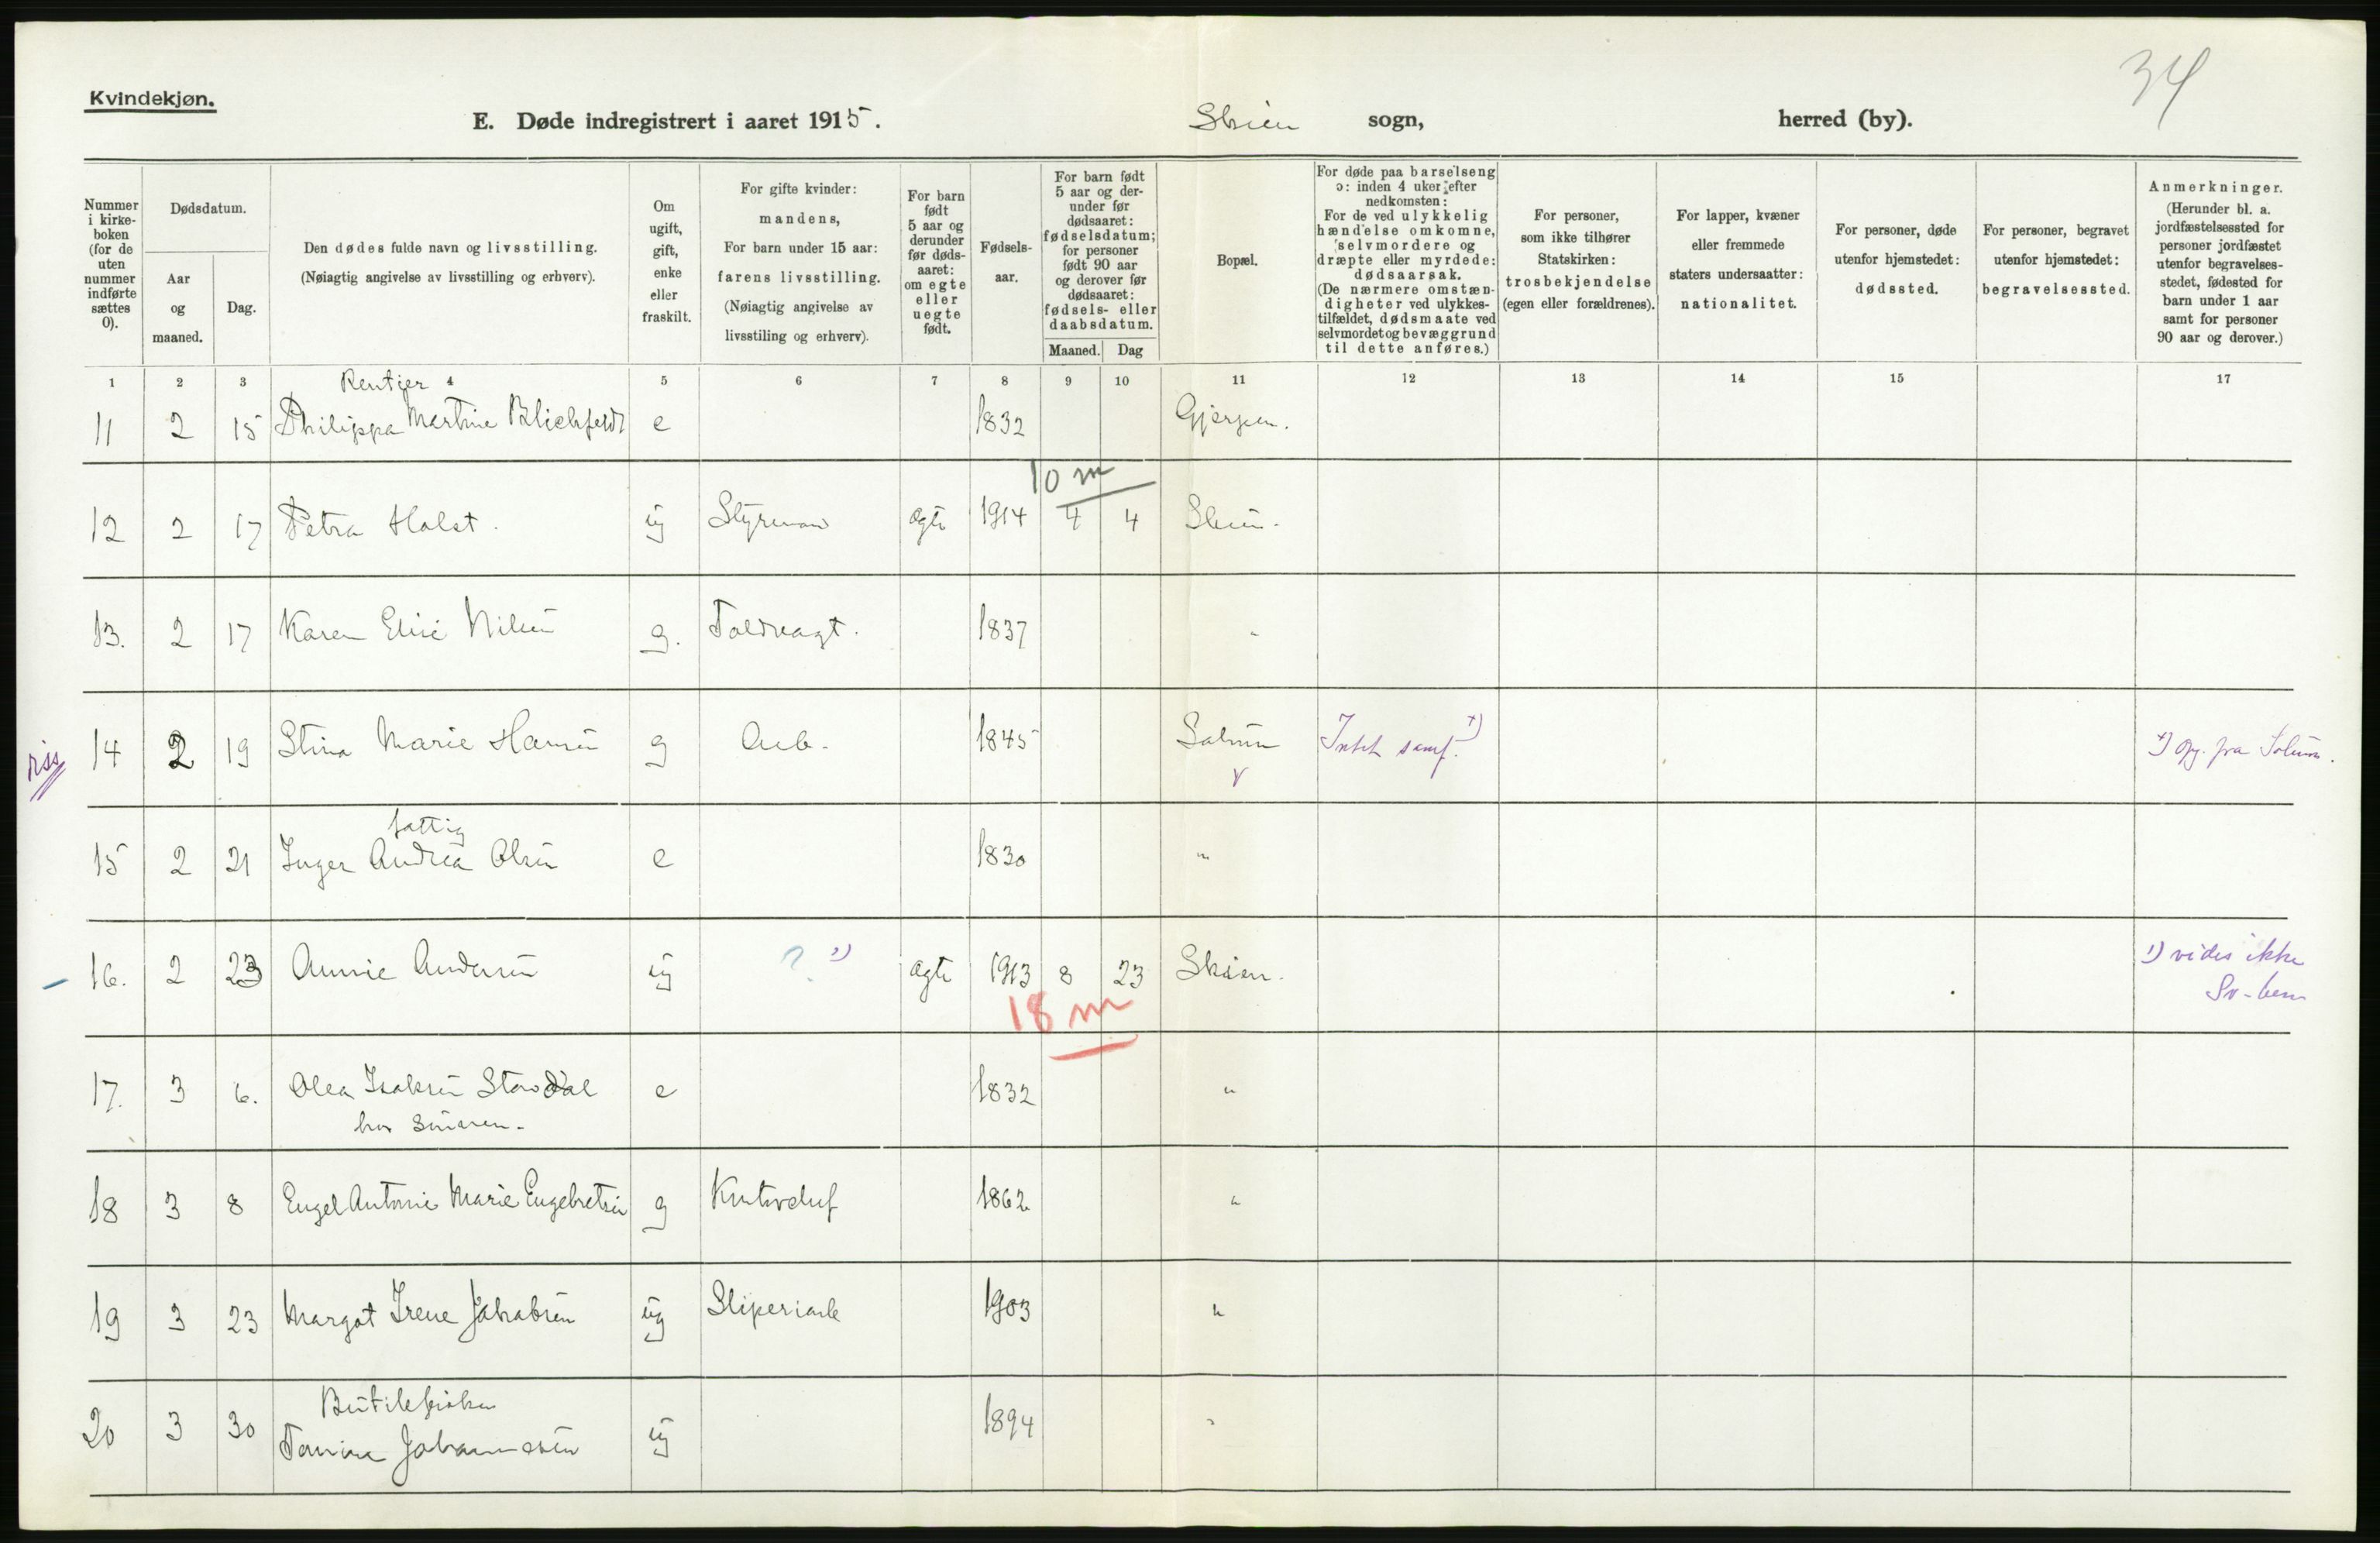 34
Kvindekjøn.
E. Døde indregistrert i aaret 1915. Skien sogn, herred (by).
Nummer i kirke-boken (for de uten nummer indførte sættes 0).
Dødsdatum.
Aar og maaned.
Dag.
Den dødes fulde navn og livsstilling.
(Nøiagtig angivelse av livsstilling og erhverv).
Om ugift, gift, enke eller fraskilt.
For gifte kvinder: mandens,
For barn under 15 aar: farens livsstilling.
(Nøiagtig angivelse av livsstiling og erhverv).
For barn født 5 aar og derunder før døds-aaret: om egte eller uegte født.
Fødsels-aar.
For barn født 5 aar og der-under før dødsaaret: fødselsdatum; for personer født 90 aar og derover før dødsaaret: fødsels- eller daabsdatum.
Maaned. Dag
Bopæl.
For døde paa barselseng ɔ: inden 4 uker efter nedkomsten:
For de ved ulykkelig hændelse omkomne, selvmordere og dræpte eller myrdede: dødsaarsak.
(De nærmere omstæn-digheter ved ulykkes-tilfældet, dødsmaate ved selvmordet og bevæggrund til dette anføres.)
For personer, som ikke tilhører Statskirken: trosbekjendelse (egen eller forældrenes).
For lapper, kvæner eller fremmede staters undersaatter: nationalitet.
For personer, døde utenfor hjemstedet: dødssted.
For personer, begravet utenfor hjemstedet: begravelsessted.
Anmerkninger.
(Herunder bl. a. jordfæstelsessted for personer jordfæstet utenfor begravelses-stedet, fødested for barn under 1 aar samt for personer 90 aar og derover.)
1 2 3 4 5 6 7 8 9 10 11 12 13 14 15 17
Rentier
11 2 15 Philippa Martine Blichfeldt e 1832 Gjerpen.
10 m
12 2 17 Petra Holst. ug Styrmand ægte 1914 4 4 Skien.
13. 2 17 Karen Elise Nilsen g. Toldvagt. 1837 "
14 2 19 Stina Marie Hansen g Arb. 1845 Solum Intet samf. +) +) Op. fra Solum.
fattig
15 2 21 Inger Andrea Olsen e 1830 "
16. 2 23 Annie Andersen ug ? 1) ægte 1913 8 23 Skien. 1) vides ikke
18 m
17. 3 6. Olea Isaksen Stavdal e 1832 "
hos sønnen.
18 3 8 Engel Antonie Marie Engebretsen g 1862 "
19 3 23 Margot Irene Jakobsen ug Sliperiarb 1903 "
20 3 30 Johannesen ug 1894 "